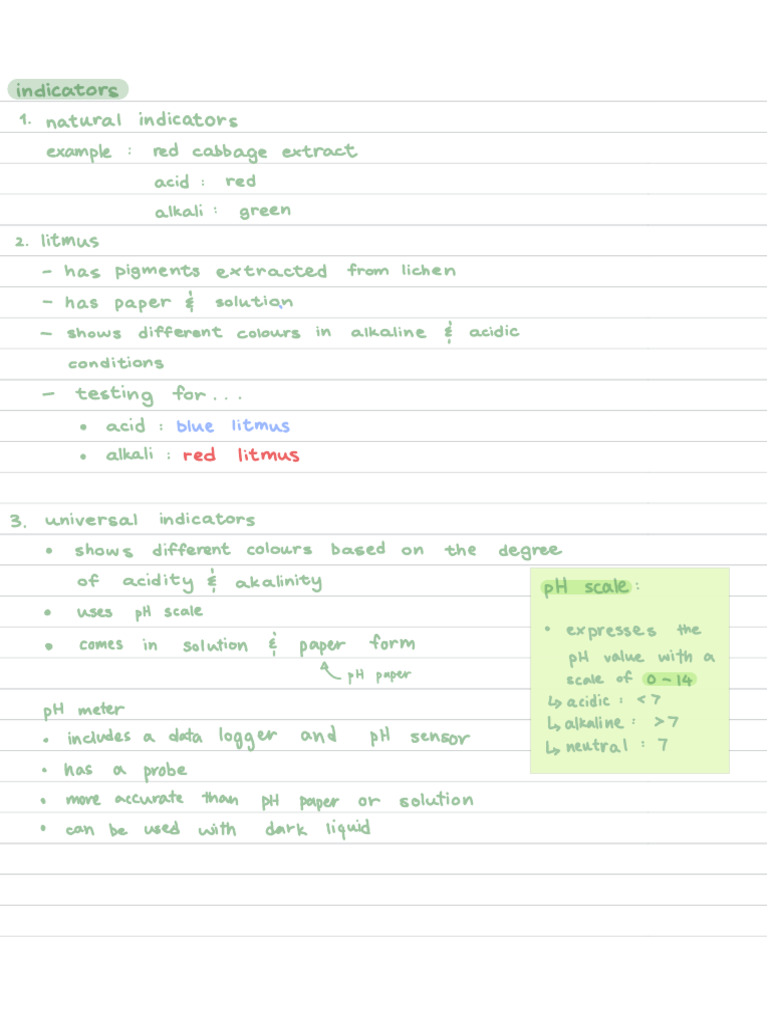 indicators
1. natural indicators
example : red cabbage extract
acid : red
alkali : green
2. litmus
- has pigments extracted from lichen
- has paper & solution
- shows different colours in alkaline & acidic
conditions
- testing for...
• acid : blue litmus
• alkali : red litmus
3. universal indicators
• shows different colours based on the degree
of acidity & akalinity
• uses pH scale
• comes in solution & paper form
pH paper
pH scale :
• expresses the
pH value with a
scale of 0-14
↳ acidic : <7
↳ alkaline : >7
↳ neutral : 7
pH meter
• includes a data logger and pH sensor
• has a probe
• more accurate than pH paper or solution
• can be used with dark liquid